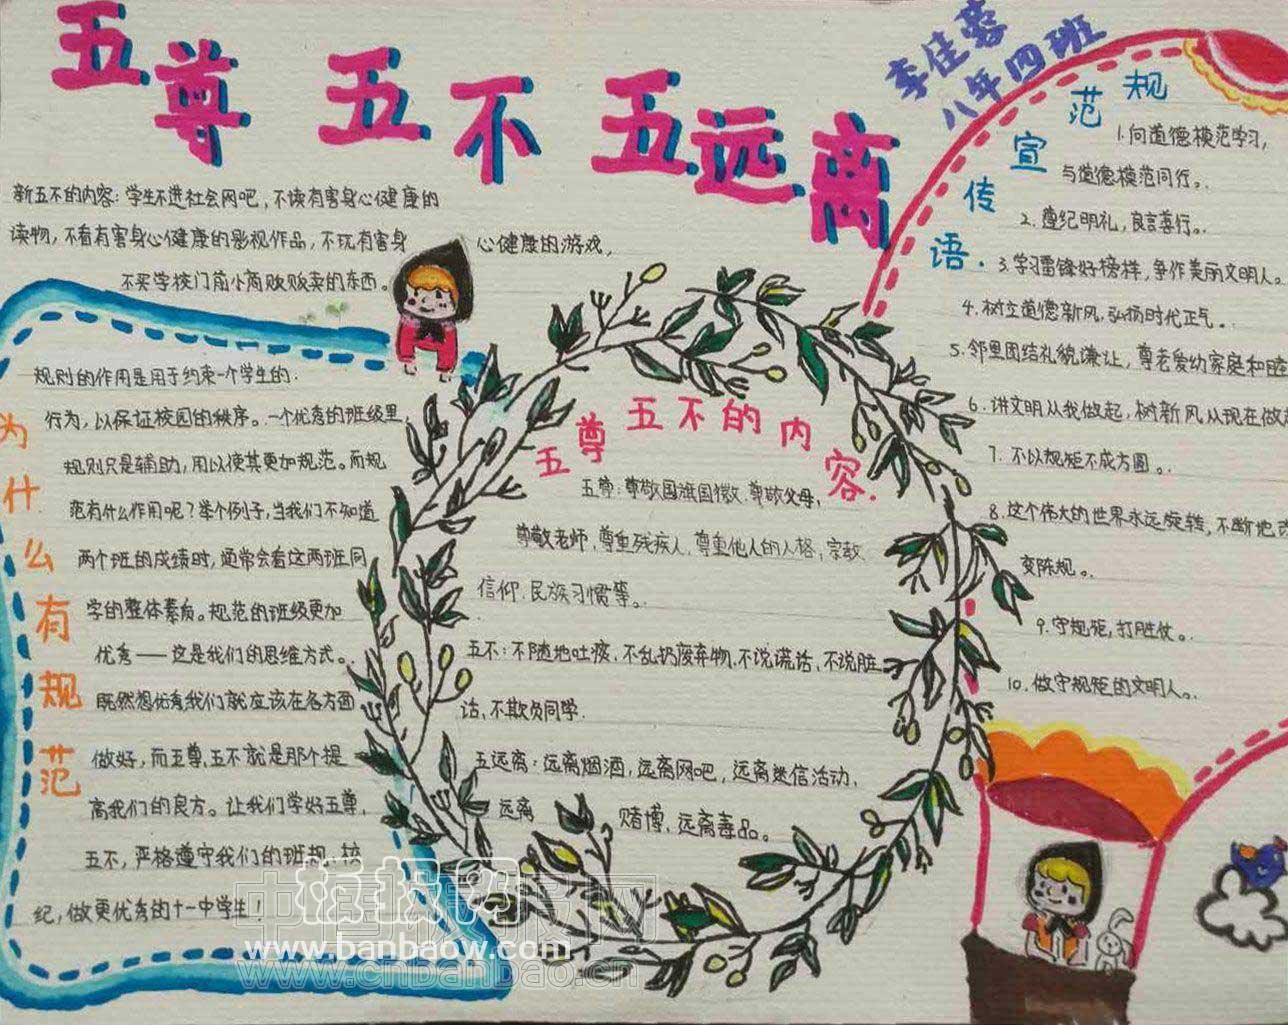 五尊 五不 五远离
李佳蓉
八年四班
新五不的内容:学生不进社会网吧,不读有害身心健康的
读物,不看有害身心健康的影视作品,不玩有害身心健康的游戏,
不买学校门前小商贩贩卖的东西。
为什么有规范
规则的作用是用于约束一个学生的
行为,以保证校园的秩序。一个优秀的班级里,
规则只是辅助,用以使其更加规范。而规
范有什么作用呢?举个例子,当我们不知道
两个班的成绩时,通常会看这两班同
学的整体素质。规范的班级更加
优秀——这是我们的思维方式。
既然想优秀我们就应该在各方面
做好,而五尊五不就是那个提
高我们的良方。让我们学好五尊,
五不,严格遵守我们的班规,校
纪,做更优秀的十一中学生!
五尊五不的内容.
五尊:尊敬国旗国徽.尊敬父母,
尊敬老师,尊重残疾人,尊重他人的人格,宗教
信仰.民族习惯等。
五不:不随地吐痰,不乱扔废弃物,不说谎话,不说脏
话,不欺负同学.
五远离:远离烟酒,远离网吧,远离迷信活动,
远离赌博,远离毒品。
规范宣传语.
1.向道德模范学习,
与道德模范同行。
2.遵纪明礼,良言善行。
3.学习雷锋好榜样,争作美丽文明人。
4.树立道德新风,弘扬时代正气。
5.邻里团结礼貌谦让,尊老爱幼家庭和睦
6.讲文明从我做起,树新风从现在做起
7.不以规矩不成方圆。
8.这个伟大的世界永远旋转,不断地改
变陈规。
9.守规矩,打胜仗。
10.做守规矩的文明人。
中国板报网
www.banbaow.com
www.cnbanbao.cn